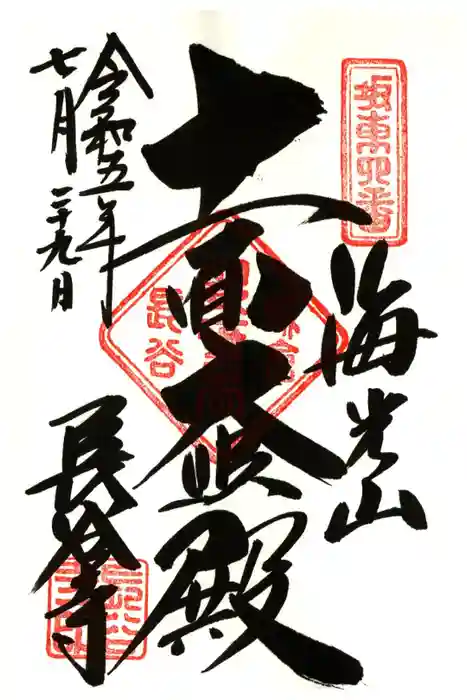 坂東四番
海光山
十一面大悲殿
長谷
令和五年
七月二十九日
長谷寺